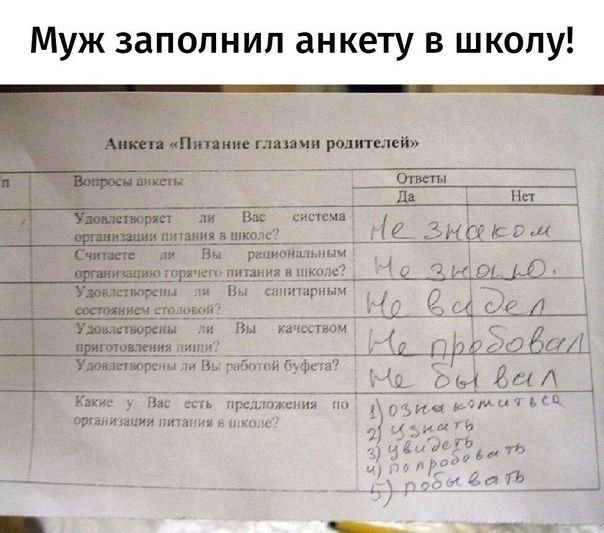 Муж заполнил анкету в школу!
Анкета «Питание глазами родителей»
п
Вопросы анкеты
Ответы
Да
Нет
Удовлетворяет ли Вас система
организации питания в школе?
Не знаком
Считаете ли Вы рациональным
организацию горячего питания в школе?
Не знаю.
Удовлетворены ли Вы санитарным
состоянием столовой?
Не видел
Удовлетворены ли Вы качеством
приготовления пищи?
Не пробовал
Удовлетворены ли Вы работой буфета?
Не бывал
Какие у Вас есть предложения по
организации питания в школе?
1) ознакомиться
2) узнать
3) увидеть
4) попробовать
5) побывать